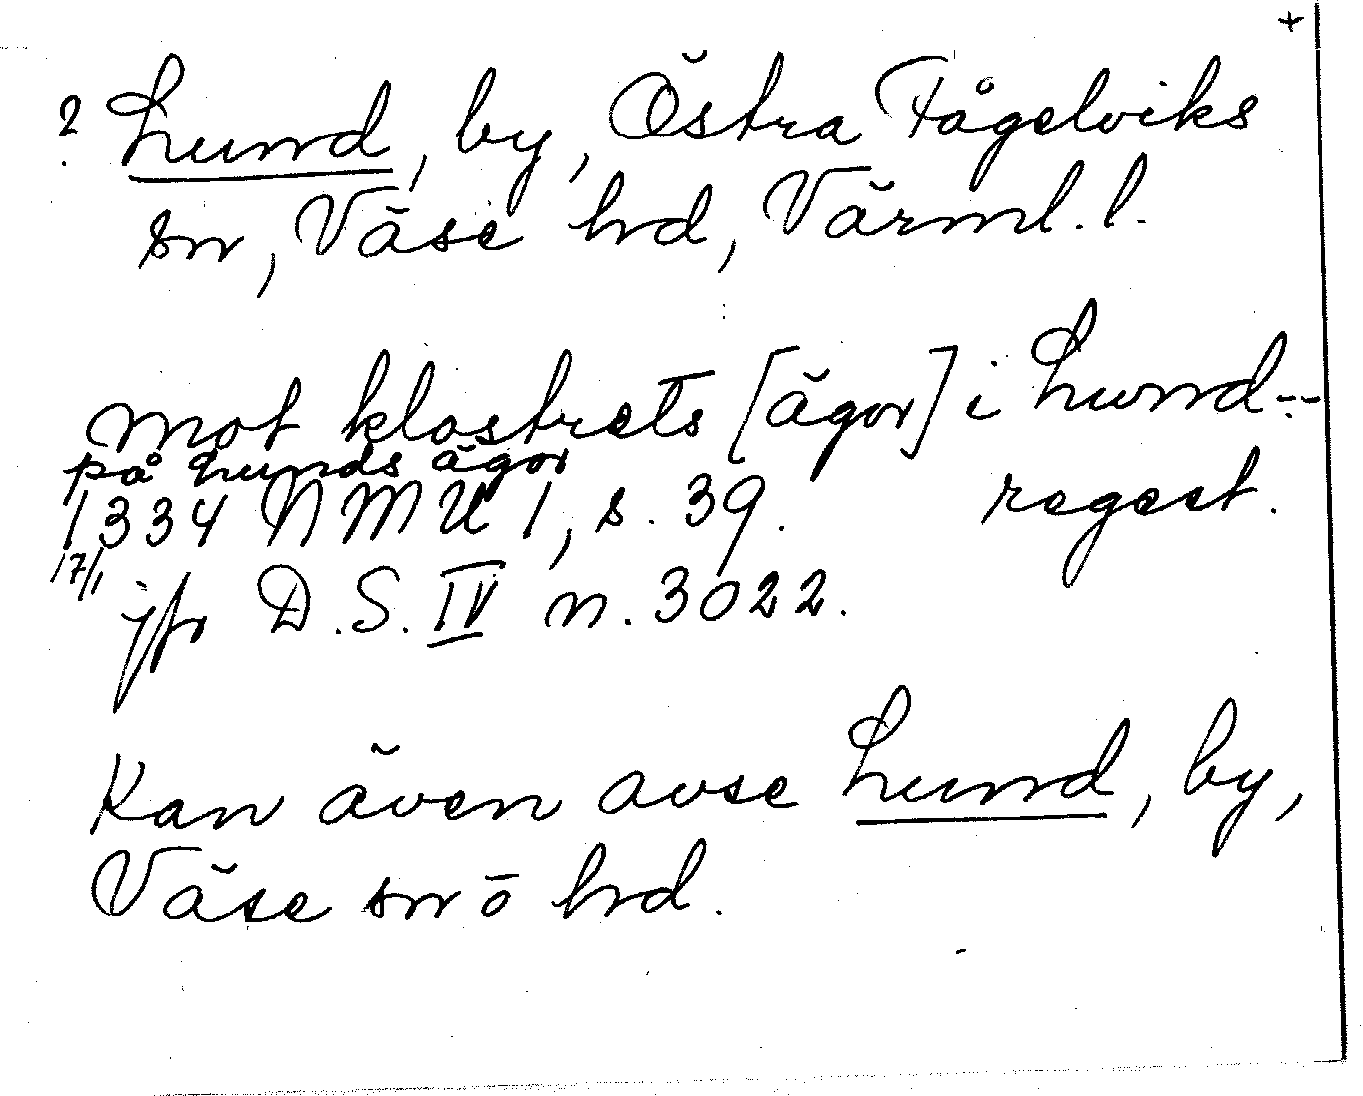 +
? Lund, by, Östra Fågelviks
sn, Väse hd, Värml. l.
mot klostrets [ägor] i Lund--
på Lunds ägor
1334 NMU 1, s. 39. regest.
17/1
jfr D.S. IV n. 3022.
Kan även avse Lund, by,
Väse sn o hd.